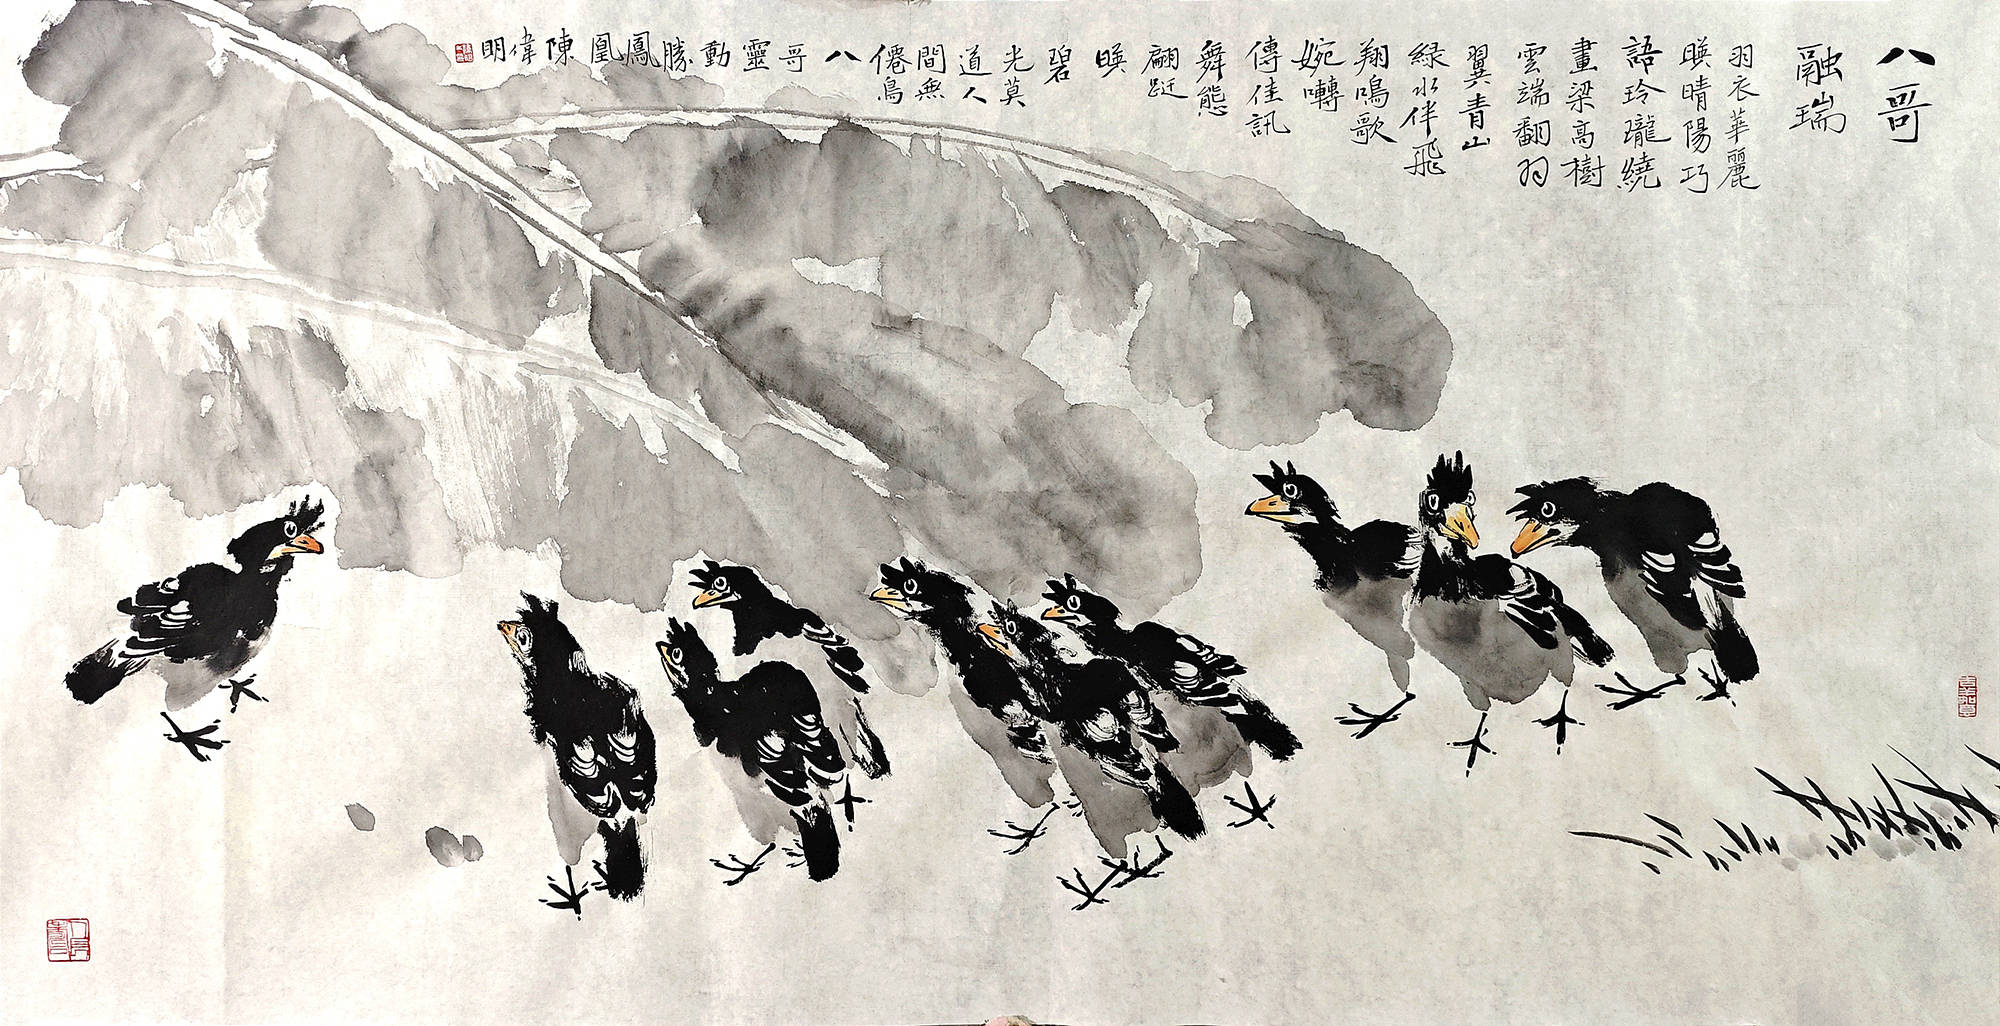 八哥
融瑞
羽衣華麗
暎晴陽巧
語玲瓏繞
畫梁高樹
雲端翻羽
翼青山
綠水伴飛
翔鳴歌
婉囀
傳佳訊
舞態
翩跹
暎
碧
光莫
道人
間無
僊鳥
八
哥
靈
動
勝
鳳
凰
陳
偉
明